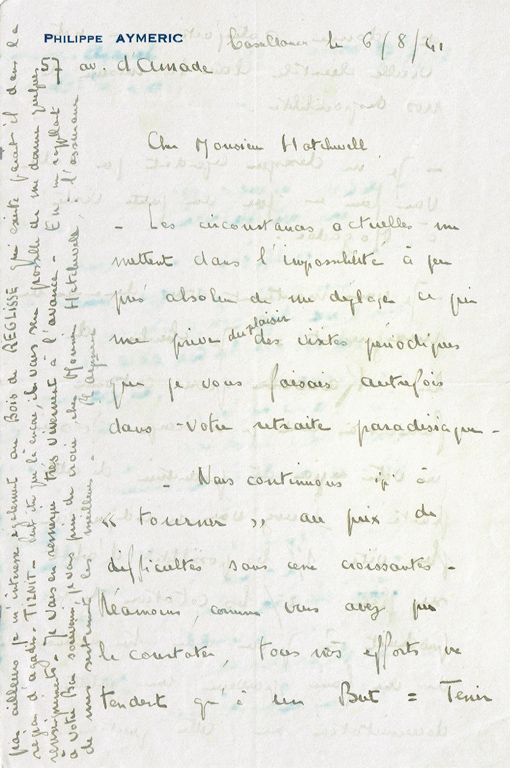 PHILIPPE AYMERIC
Casablanca le 6/8/41
57 av d'Amade
Cher Monsieur Hatchwell
- Les circonstances actuelles me
mettent dans l'impossibilité à peu
près absolue de me déplacer ce qui
me prive du plaisir des visites périodiques
que je vous faisais autrefois
dans votre retraite paradisiaque -
- Nous continuons ici à
« tourner » au prix de
difficultés sans cesse croissantes -
Néanmoins, comme vous avez pu
le constater, tous nos efforts ne
tendent qu'à un But = Tenir
par ailleurs je m'intéresse également au Bois de REGLISSE qui existe paraît il dans la
région d'agadir - TIZNIT - peut être qu'là encore, il vous sera possible de me donner quelques
renseignements - Je vous en remercie très vivement à l'avance - En me rappelant
à votre Bon souvenir, je vous prie de croire cher Monsieur Hatchwell, à l'assurance
de mes sentiments les meilleurs -
P Aymeric